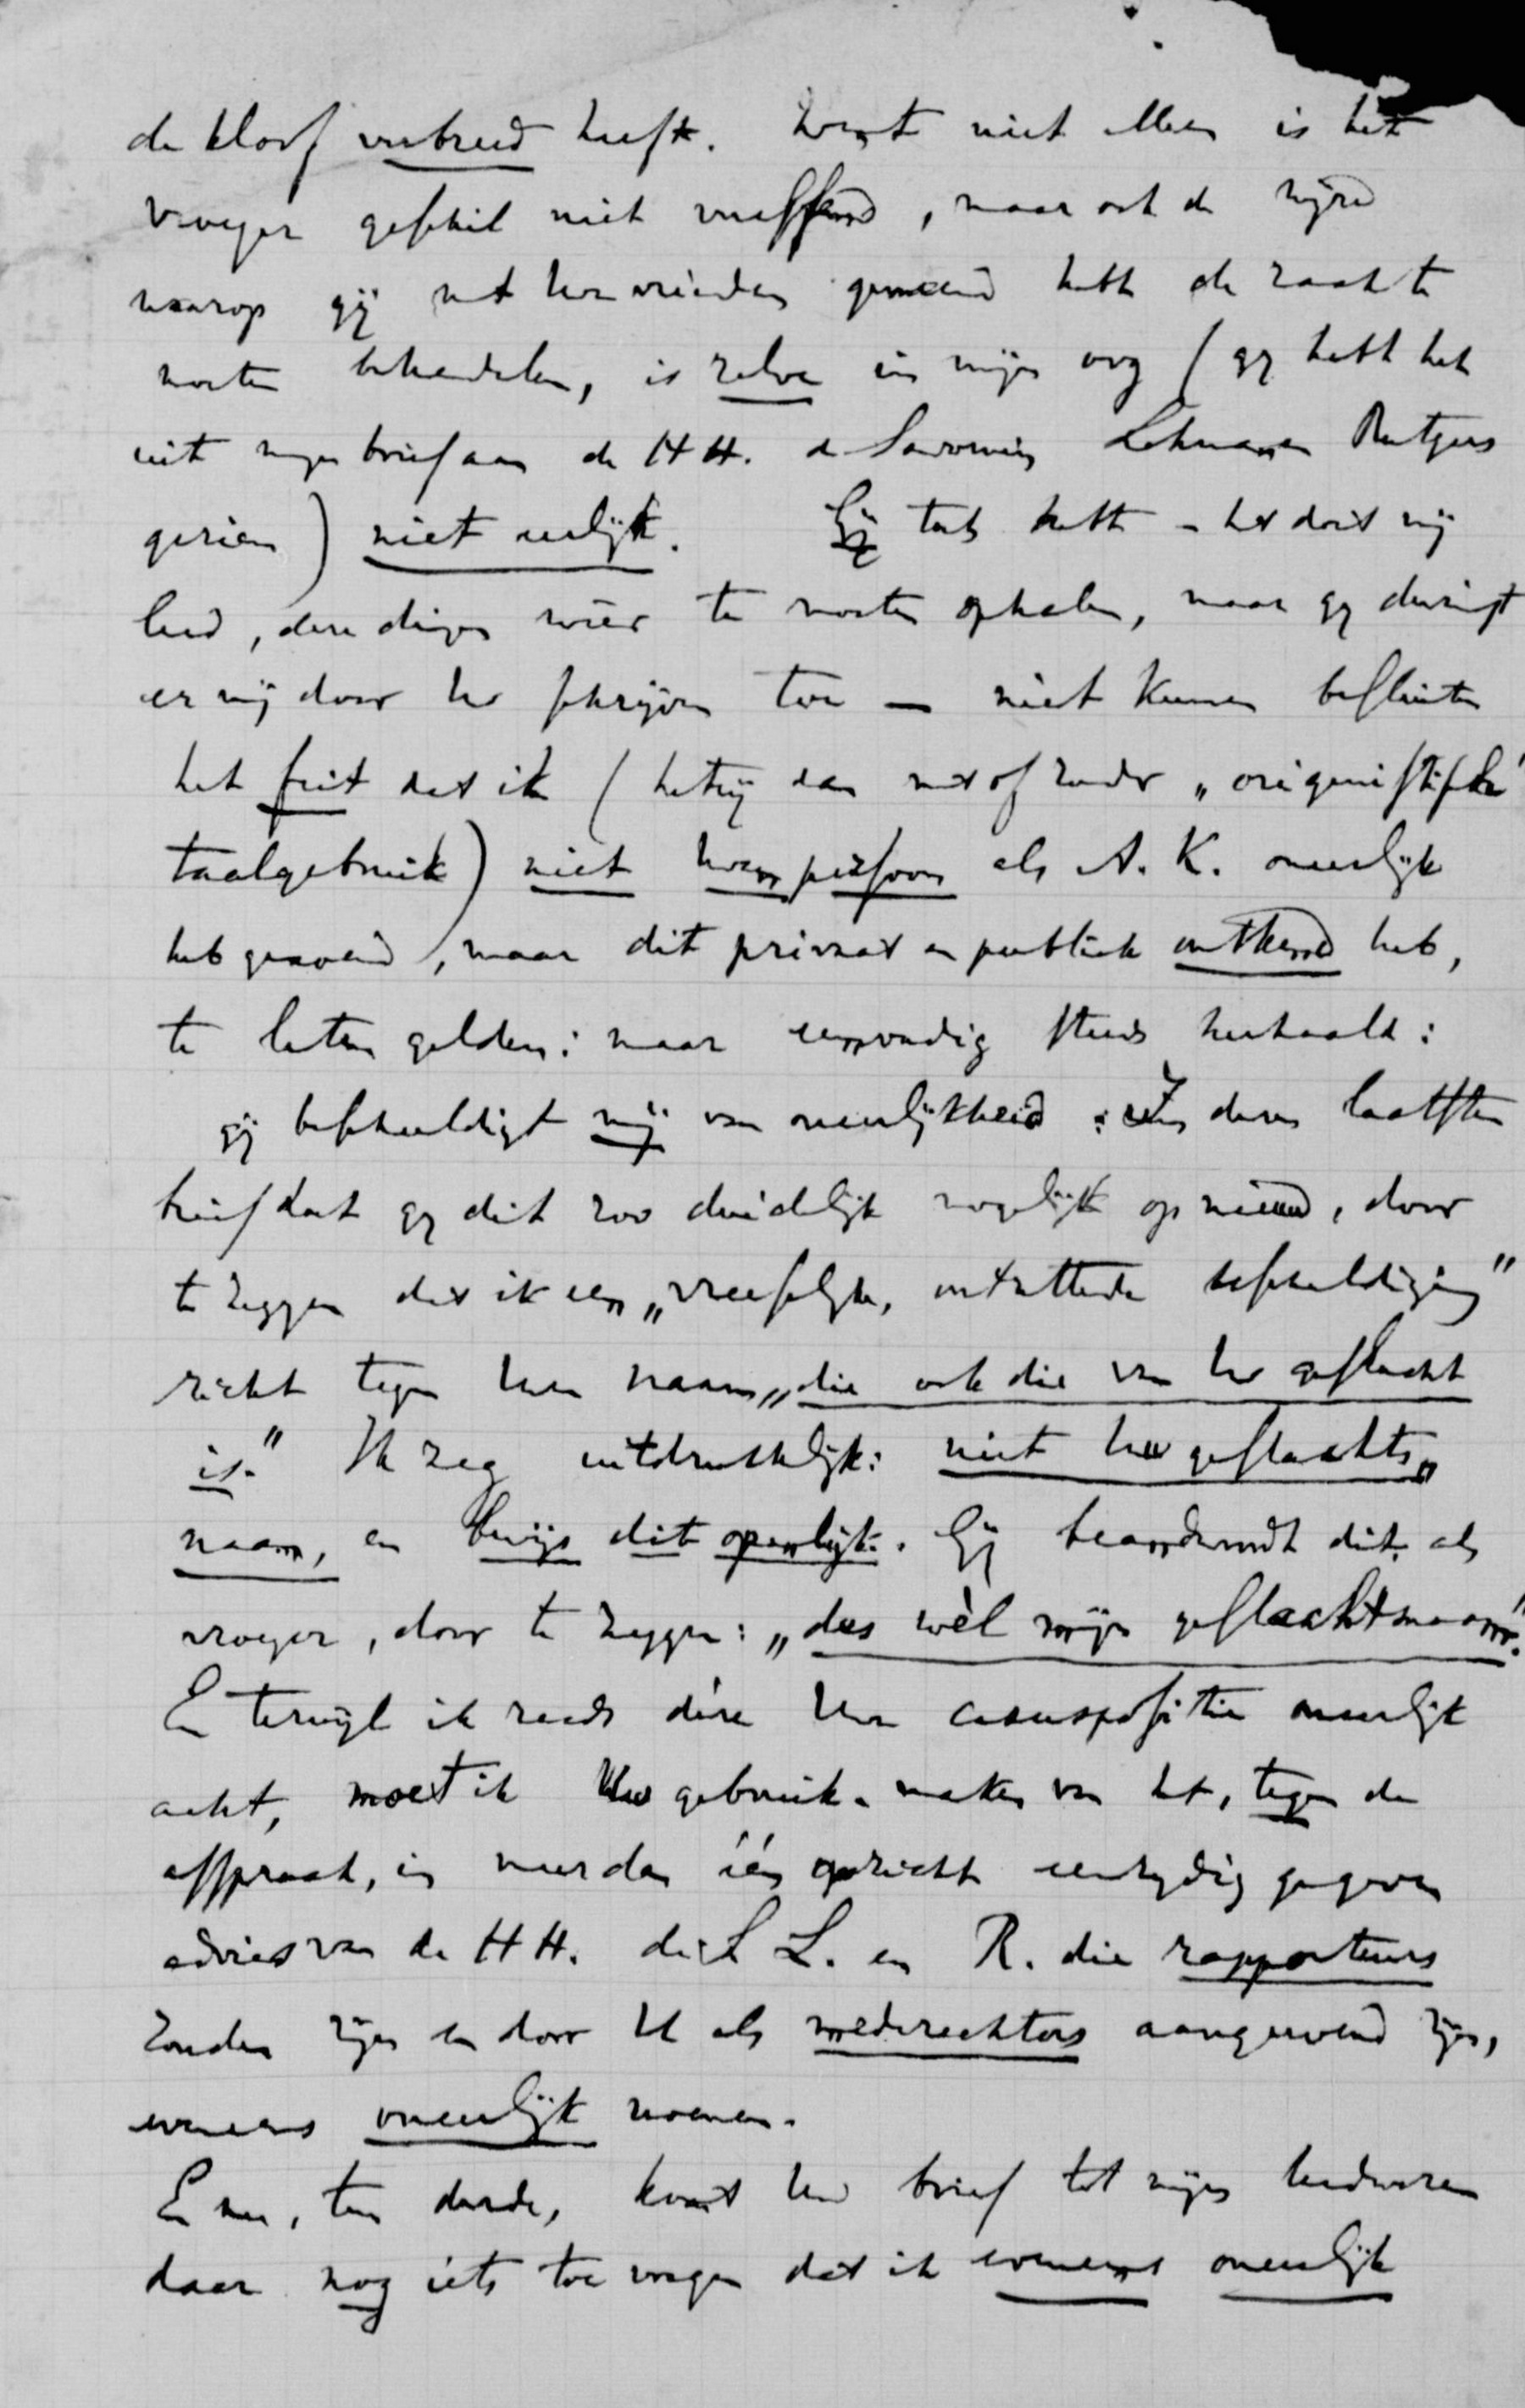 de kloof verbreed heeft. Want niet alleen is het
vroeger geschil niet vereffend, maar ook de wijze
waarop gij met Uw vrienden gemeend hebt de zaak te
moeten behandelen, is zelve in mijn oog (gij hebt het
uit mijn brief aan de HH. de Savornin Lohman en Rutgers
gezien) niet eerlijk. Gij toch hebt – het doet mij
leed, deze dingen wêer te moeten ophalen, maar gij dwingt
er mij door Uw schrijven toe – niet kunnen besluiten
het feit dat ik (hetzij dan met of zonder „origenistisch"
taalgebruik) niet Uwen persoon als A. K. oneerlijk
heb genoemd, maar dit privaat en publiek ontkend heb,
te laten gelden: maar eenvoudig steeds herhaald:
gij beschuldigt mij van oneerlijkheid: In dezen laatsten
brief doet gij dit zoo duidelijk mogelijk op nieuw, door
te zeggen dat ik een „vreeselijke, ontzettende beschuldiging"
richt tegen Uwen naam, „die ook die van Uw geslacht
is." Ik zeg uitdrukkelijk: niet Uw geslachts„
naam, en bewijs dit openlijk. Gij beantwoordt dit, als
vroeger, door te zeggen: „dus wèl mijn geslachtsnaam".
En terwijl ik reeds déze Uwe casuspositie oneerlijk
acht, moet ik Uw gebruik-maken van het, tegen de
afspraak, in meer dan één opzicht eenzijdig gegeven
advies van de HH. de S L. en R. die rapporteurs
zouden zijn en door U als mederechters aangewend zijn,
eveneens oneerlijk noemen.
En nu, ten derde, komt Uw brief tot mijn leedwezen
daar nog iets toe voegen dat ik eveneens oneerlijk